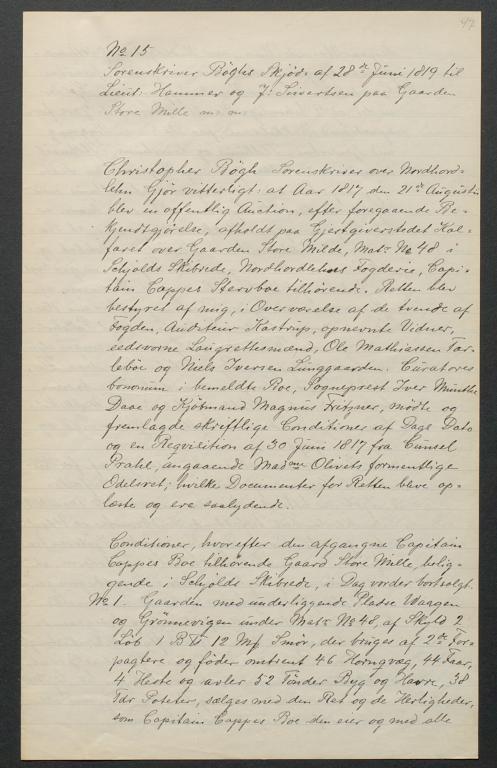 47
No 15
Sorenskriver Bøghs Skjøde af 28de Juni 1819 til
Lieut: Hammer og J: Sivertsen paa Gaarden
Store Milde m: m:
Christopher Bøgh Sorenskriver over Nordhord-
lehn Gjør vitterligt: at Aar 1817 den 21de Augusti
blev en offentlig Auction, efter foregaaende Be-
kjendtgjørelse, afholdt paa Gjestgiverstedet Kal-
faret over Gaarden Store Milde, Matr: No 48 i
Schjolds Skibrede, Nordhordlehns Fogderie, Capi-
tain Cappes Stervboe tilhørende. Retten blev
bestyret af mig, i Overværelse af de tvende af
Fogden, Auditeur Kastrup, opnevnte Vidner,
eedsvorne Laugrettesmænd, Ole Mathiassen Tar-
leböe og Niels Iversen Lünggaarden. Curatores
bonorum i bemeldte Boe, Sogneprest Iver Munthe
Daae og Kjøbmand Magnus Fritzner, mødte og
fremlagde skriftlige Conditioner af Dags Dato
og en Reqvisition af 30 Juni 1817 fra Cünsel
Prahl, angaaende Madme Olivets formentlige
Odelsret, hvilke Documenter for Retten bleve op-
læste og ere saalydende.
Conditioner, hvorefter den afgangne Capitain
Cappes Boe tilhørende Gaard Store Milde, belig-
gende i Schjolds Skibrede, i Dag vorder bortsolgt.
No 1. Gaarden med underliggende Pladse Vaagen
og Grönnevigen under Matr: No 48, af Skyld 2
Løb 1 B℔ 12 Mk Smör, der bruges af 2de For-
pagtere og føder omtrent 46 Hornqvæg, 44 Faar,
4 Heste og avler 52 Tönder Byg og Havre, 38
Tdr Poteter, sælges med den Ret og de Herligheder,
som Capitain Cappes Boe den eier og med alle